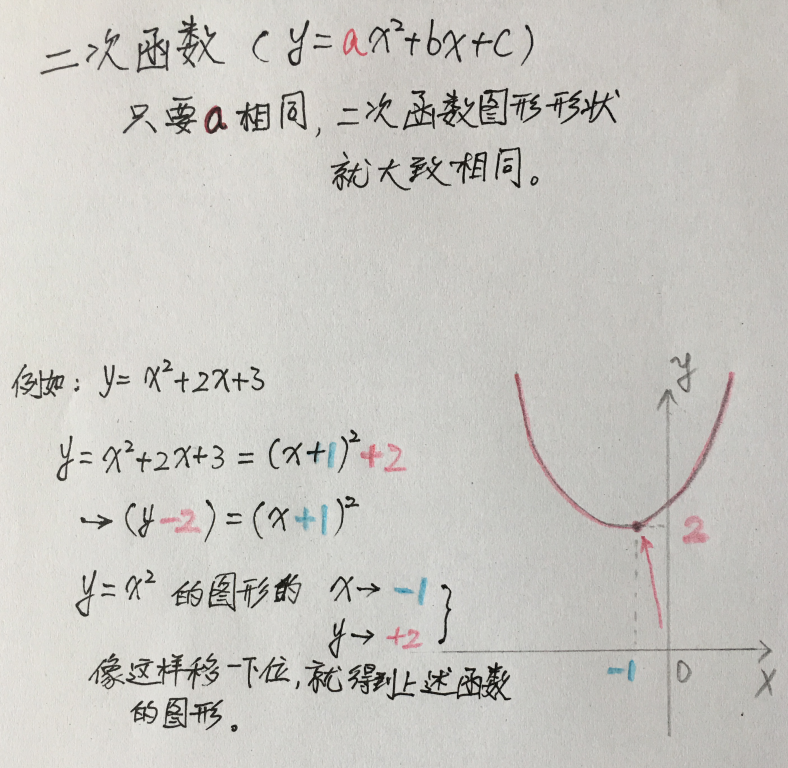 二次函数（y=ax²+bx+c）
只要a相同，二次函数图形形状
就大致相同。
例如：y=x²+2x+3
y=x²+2x+3=(x+1)²+2
→(y-2)=(x+1)²
y=x²的图形的 x→-1
y→+2 }
像这样移一下位，就得到上述函数
的图形。
y
2
-1 0 x